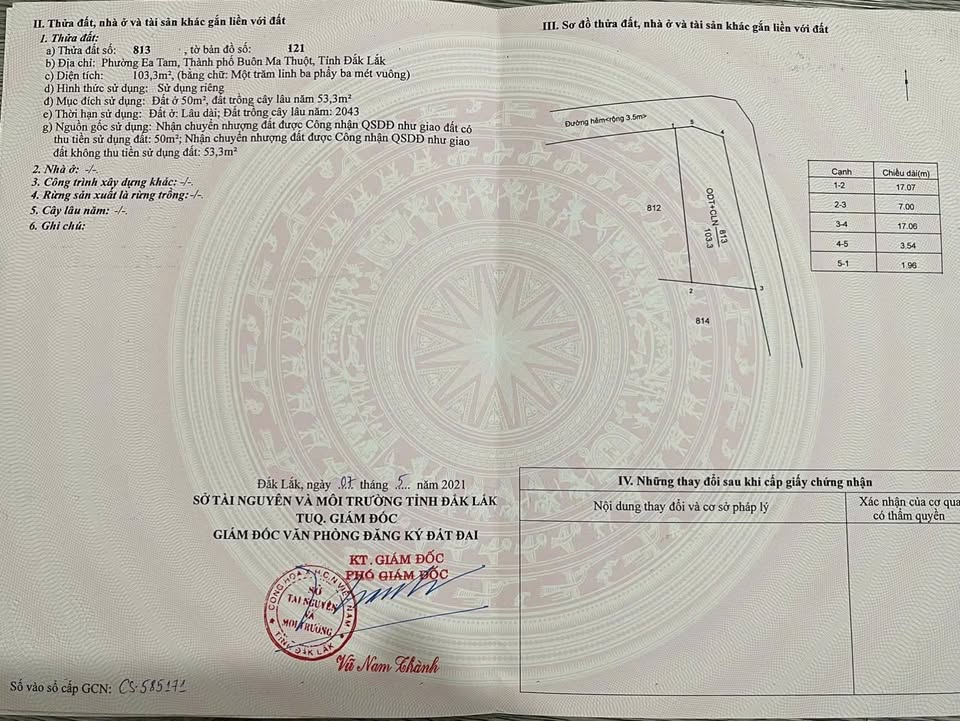 II. Thửa đất, nhà ở và tài sản khác gắn liền với đất
1. Thửa đất:
a) Thửa đất số: 813 , tờ bản đồ số: 121
b) Địa chỉ: Phường Ea Tam, Thành phố Buôn Ma Thuột, Tỉnh Đắk Lắk
c) Diện tích: 103,3m², (bằng chữ: Một trăm linh ba phẩy ba mét vuông)
d) Hình thức sử dụng: Sử dụng riêng
đ) Mục đích sử dụng: Đất ở 50m², đất trồng cây lâu năm 53,3m²
e) Thời hạn sử dụng: Đất ở: Lâu dài; Đất trồng cây lâu năm: 2043
g) Nguồn gốc sử dụng: Nhận chuyển nhượng đất được Công nhận QSDĐ như giao đất có
thu tiền sử dụng đất: 50m²; Nhận chuyển nhượng đất được Công nhận QSDĐ như giao
đất không thu tiền sử dụng đất: 53,3m²
2. Nhà ở: -/-.
3. Công trình xây dựng khác: -/-.
4. Rừng sản xuất là rừng trồng: -/-.
5. Cây lâu năm: -/-.
6. Ghi chú:
Đắk Lắk, ngày 07 tháng 5 năm 2021
SỞ TÀI NGUYÊN VÀ MÔI TRƯỜNG TỈNH ĐẮK LẮK
TUQ. GIÁM ĐỐC
GIÁM ĐỐC VĂN PHÒNG ĐĂNG KÝ ĐẤT ĐAI
KT. GIÁM ĐỐC
PHÓ GIÁM ĐỐC
CỘNG HÒA X.H.C.N VIỆT NAM
SỞ
TÀI NGUYÊN
VÀ
MÔI TRƯỜNG
TỈNH ĐẮK LẮK
Vũ Nam Thành
Số vào sổ cấp GCN: CS-585171
III. Sơ đồ thửa đất, nhà ở và tài sản khác gắn liền với đất
Đường hẻm<rộng 3.5m>
1 5 4
812
ODT+CLN 813
103.3
2 3
814
Cạnh Chiều dài(m)
1-2 17.07
2-3 7.00
3-4 17.06
4-5 3.54
5-1 1.96
IV. Những thay đổi sau khi cấp giấy chứng nhận
Nội dung thay đổi và cơ sở pháp lý
Xác nhận của cơ qua
có thẩm quyền